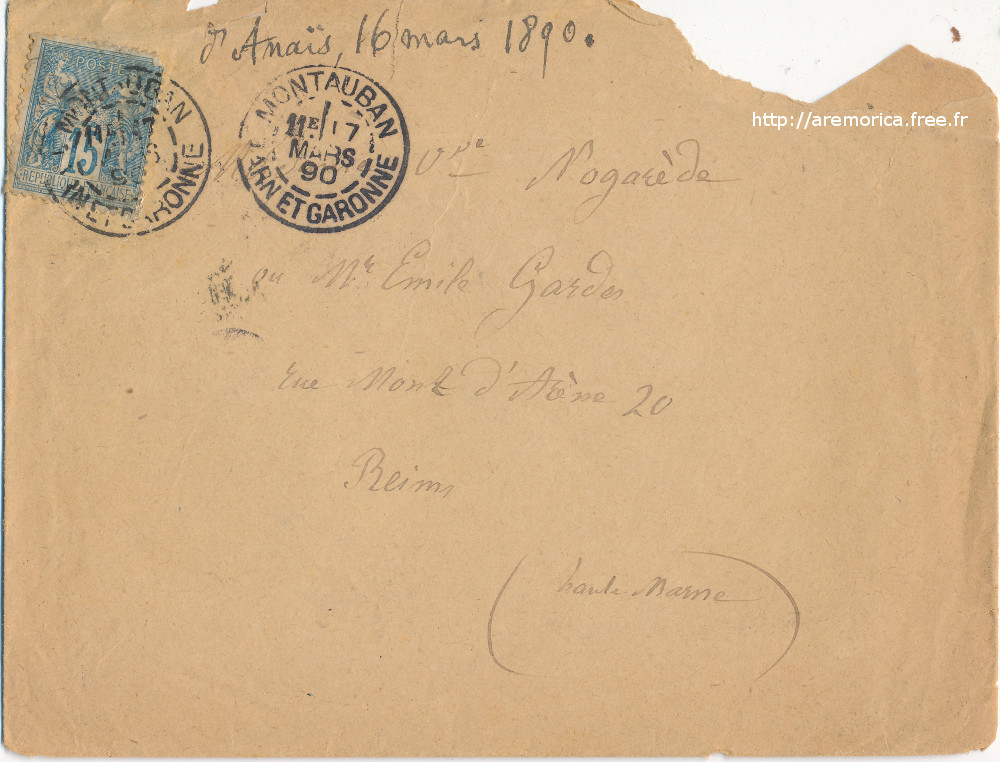 d'Anaïs, 16 mars 1890.
POSTE
15
REPUBLIQUE FRANÇAISE
MONTAUBAN
GARONNE
MONTAUBAN
11E 17
MARS
90
TARN ET GARONNE
http://aremorica.free.fr
Vve Nogarède
ou Mr Emile Gardes
rue Mont d'Arène 20
Reims
(haute Marne)